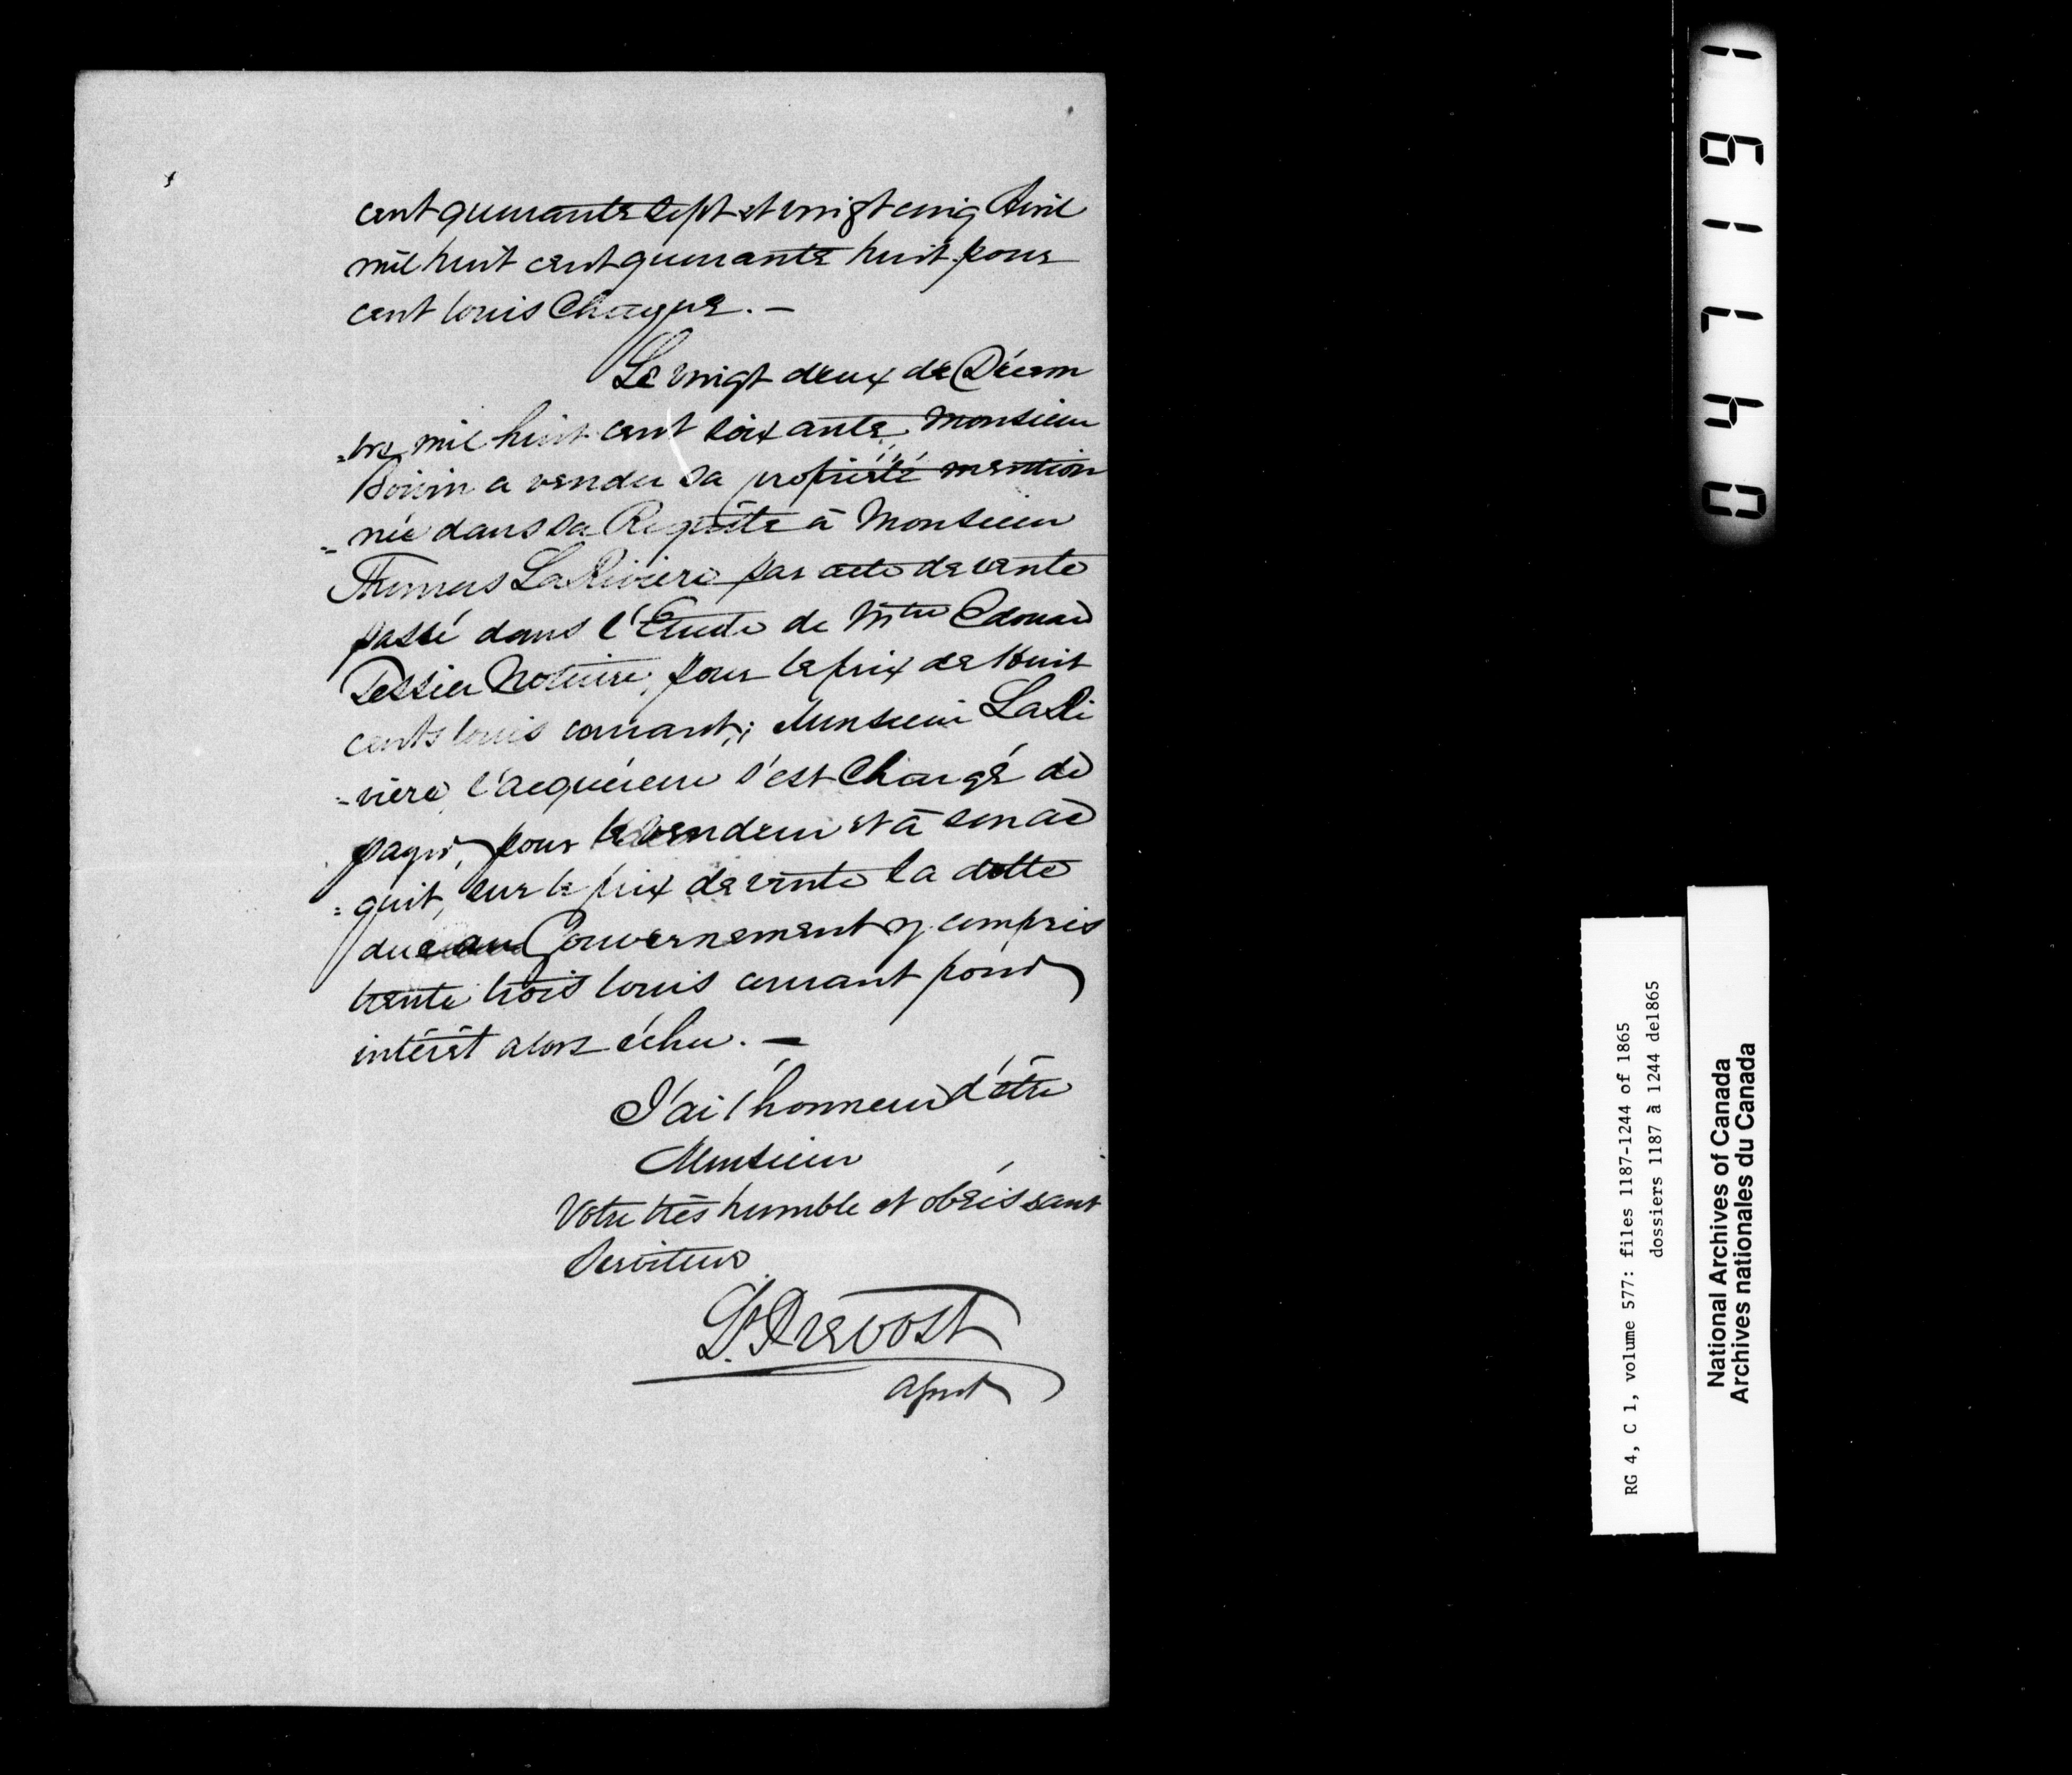 cent quarante sept et vingt cinq Avril
mil huit cent quarante huit pour
cent louis Chaque. —
Le vingt deux de Décem
=bre mil huit cent soixante, Monsieur
Boivin a vendu sa propriété mention
=née dans sa Requête à Monsieur
Thomas LaRivière par acte de vente
passé dans l'Etude de Mtre Edouard
Tessier Notaire, pour le prix de Huit
cents louis courant; Monsieur LaRi
=vière, l'acquéreur s'est Chargé de
payer, pour le vendeur et à son ac
=quit, sur le prix de vente la dette
due au Gouvernement y compris
trente trois louis courant pour
intérêt alors échu. —
J'ai l'honneur d'être
Monsieur
Votre très humble et obéissant
Serviteur
L. Prevost
Agent
0471961
RG 4, C 1, volume 577: files 1187-1244 of 1865
dossiers 1187 à 1244 de1865
National Archives of Canada
Archives nationales du Canada